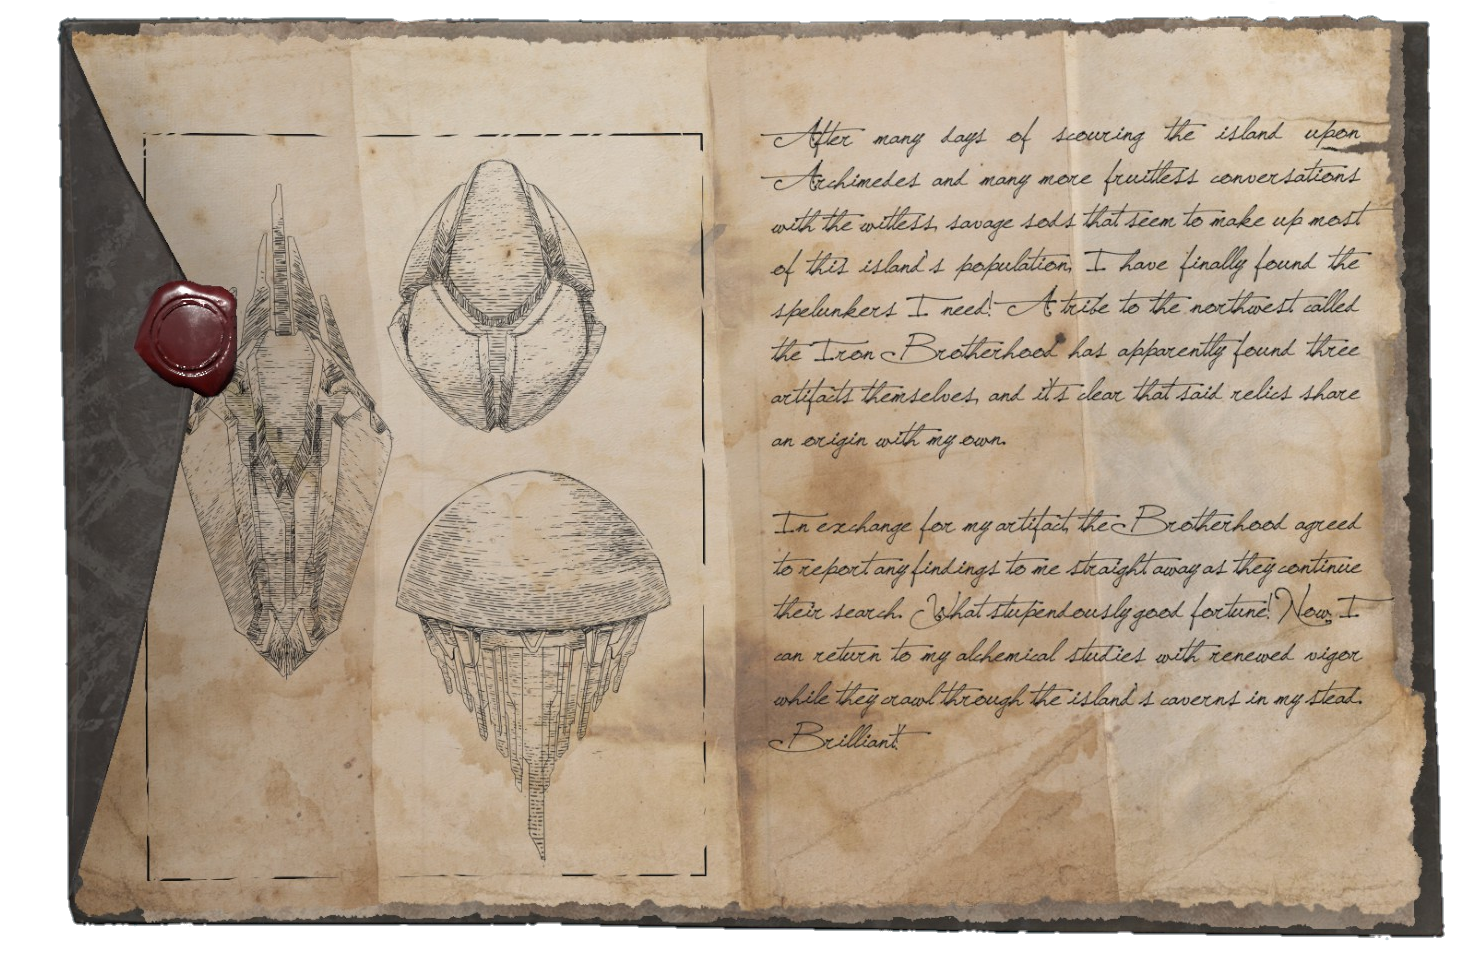 After many days of scouring the island upon
Archimedes and many more fruitless conversations
with the witless, savage sods that seem to make up most
of this island's population, I have finally found the
spelunkers I need! A tribe to the northwest called
the Iron Brotherhood has apparently found three
artifacts themselves, and it's clear that said relics share
an origin with my own.
In exchange for my artifact, the Brotherhood agreed
to report any findings to me straight away as they continue
their search. What stupendously good fortune! Now, I
can return to my alchemical studies with renewed vigor
while they crawl through the island's caverns in my stead.
Brilliant!